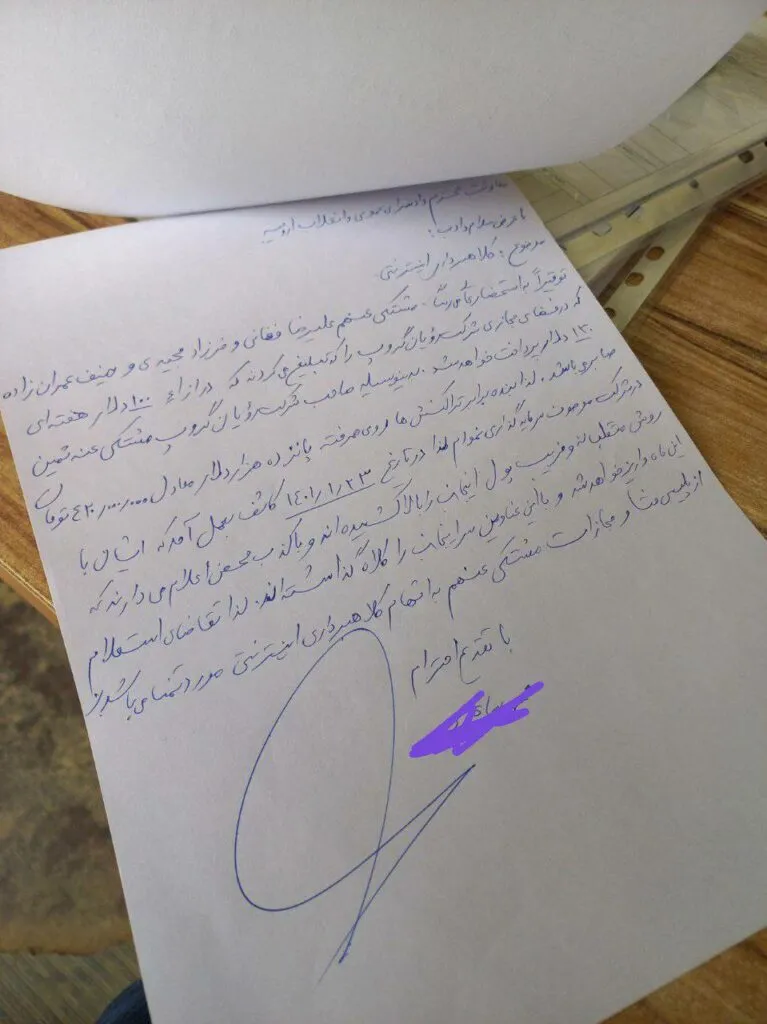 معاونت محترم دادسرای عمومی و انقلاب ارومیه
با عرض سلام و ادب؛
موضوع: کلاهبرداری اینترنتی
توقیراً به استحضار عالی مشتکی عنهم علیرضا فغانی و فرزاد مجیدی و حنیف عمران زاده
که در فضای مجازی شرکت رویان گروپ را که تبلیغ می کردند که در ازاء ۱۰۰ دلار هفته ای
۱۳۰ دلار پرداخت خواهد شد. بدینوسیله صاحب شرکت رویان گروپ مشتکی عنه ثمین
صابر می باشد. لذا بنده برابر تراکنش ها مبلغ پانزده هزار دلار معادل ۴۲۰،۰۰۰،۰۰۰ تومان
در شرکت موصوف سرمایه گذاری نموده ام لذا در تاریخ ۱۴۰۱/۱/۲۳ کاشف بعمل آمد که ایشان با
روش متقلبانه و فریب پول اینجانب را بالا کشیده اند و با کذب محض اعلام می دارند که
این ماه واریز خواهد شد و با این عناوین سر اینجانب را کلاه گذاشته اند. لذا تقاضای استعلام
از پلیس فتا و مجازات مشتکی عنهم به اتهام کلاهبرداری اینترنتی مورد تمنا می باشد.
با تقدیم احترام